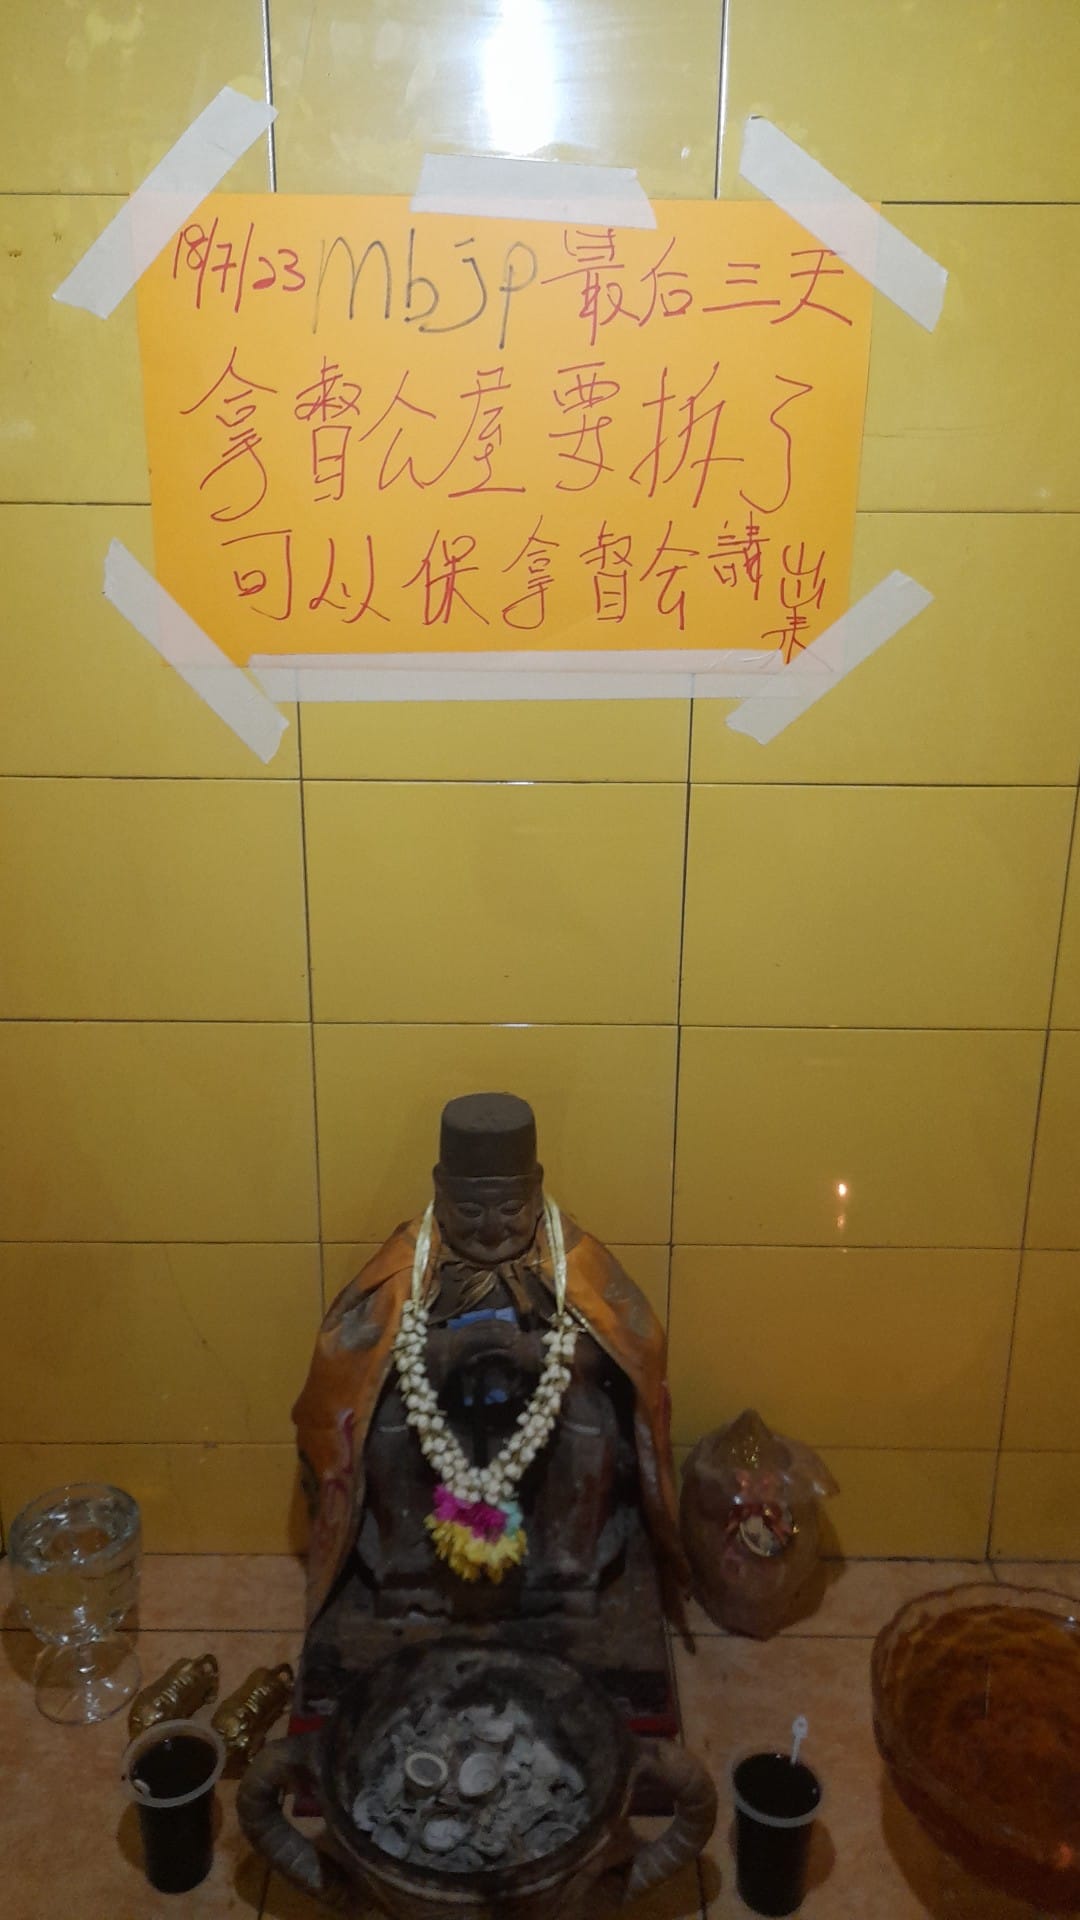 18/7/23 Mbjp 最后三天
拿督公屋要拆了
可以保拿督会請出来